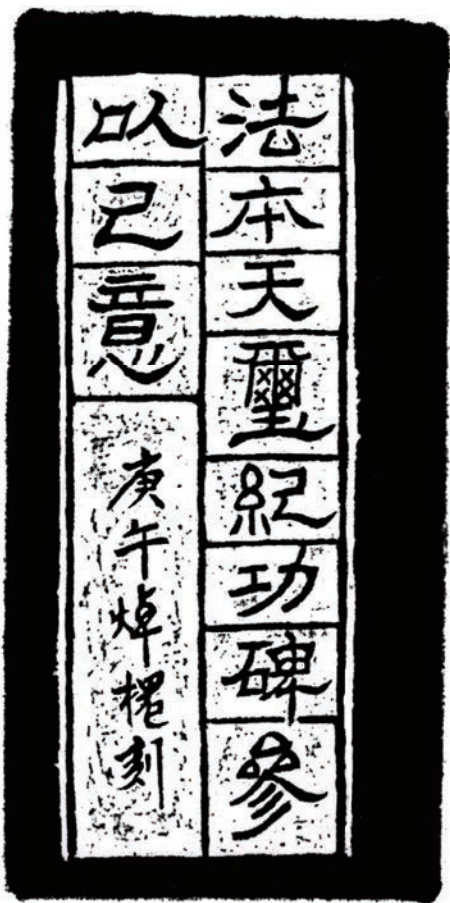 法本天璽紀功碑參
以己意
庚午焯刻